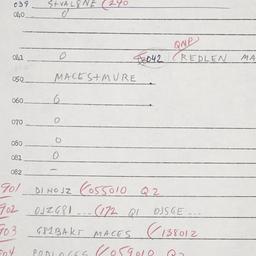 039 S+VALGNE (240
040 0
QNP
041 0 042 (REDLEN MA
050 MACES+MURE
060 6
070 0
080 0
081 0
082 -
901 DINOJZ (055010 Q2
902 OJZG81 ... (172 Q1 OJSGE ...
903 G81BAKT MACES (138012
904 PODLOGES (059010 Q2